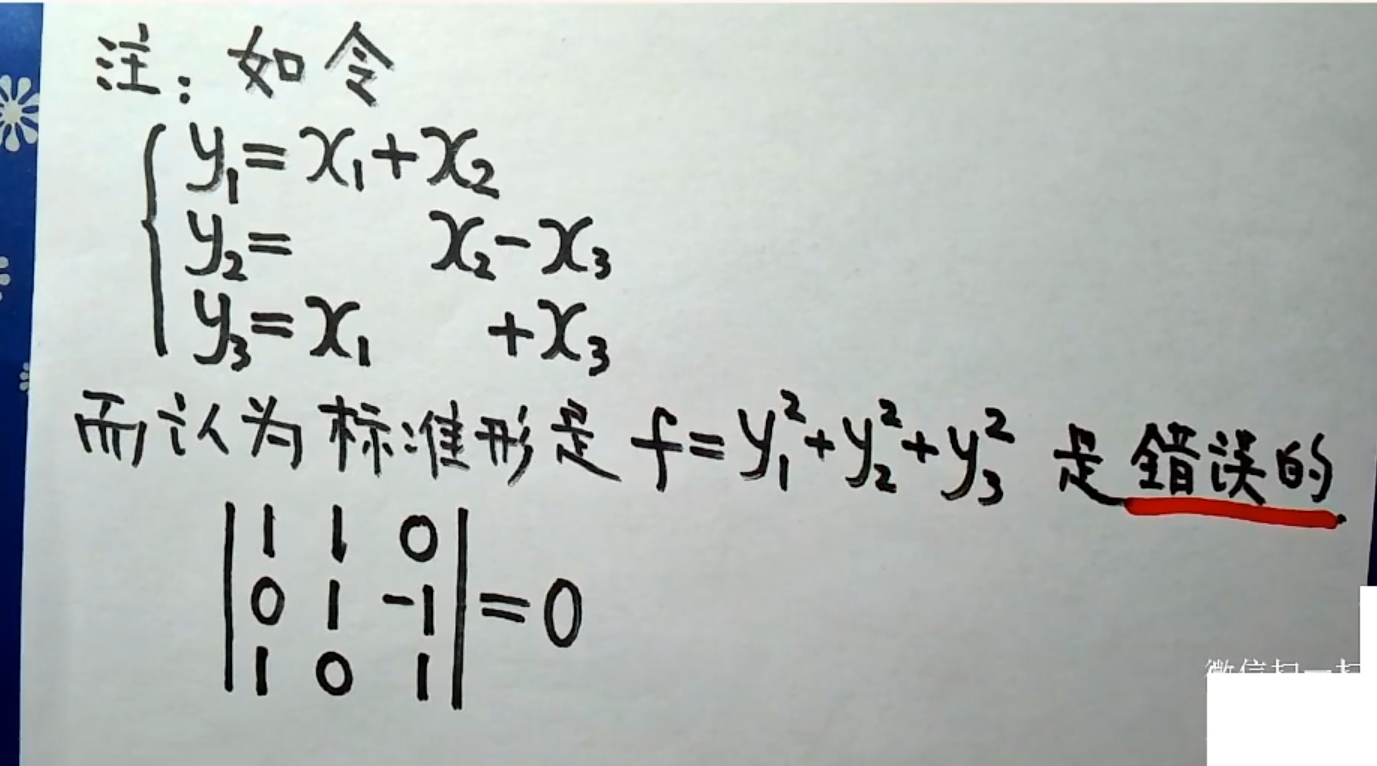 注：如令
y₁=x₁+x₂
y₂= x₂-x₃
y₃=x₁ +x₃
而认为标准形是 f=y₁²+y₂²+y₃² 是错误的
|1 1 0|
|0 1 -1|=0
|1 0 1|
微信扫一扫